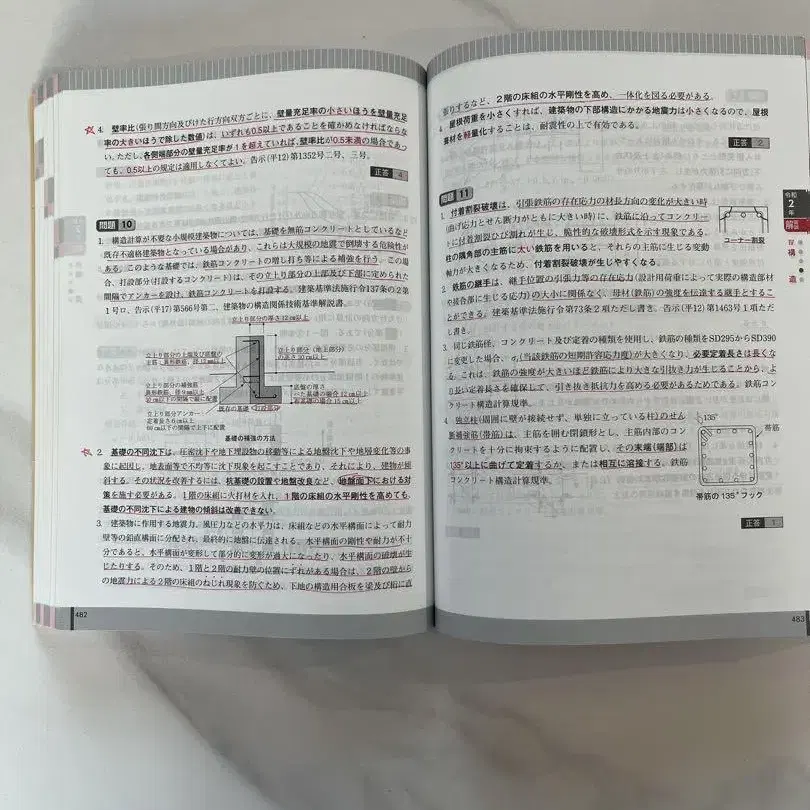 4. 壁率比(張り間方向及びけた行方向双方ごとに,壁量充足率の小さいほうを壁量充足
率の大きいほうで除した数値)は,いずれも0.5以上であることを確かめなければならな
い.ただし,各側端部分の壁量充足率が1を超えていれば,壁率比が0.5未満の場合であっ
ても,0.5以上の規定は適用しなくてよい.告示(平12)第1352号二号,三号.
正答 4
問題 10
1. 構造計算が不要な小規模建築物については,基礎を無筋コンクリートとしているなど
既存不適格建築物となっている場合があり,これらは大規模の地震で倒壊する危険性が
ある.このような基礎では,鉄筋コンクリートの増し打ち等による補強を行う.この場
合,打設部分(打設するコンクリート)は,その立上り部分の上部及び下部に定められた
間隔でアンカーを設け,鉄筋コンクリートを打設する.建築基準法施行令137条の2第
1号ロ,告示(平17)第566号第二,建築物の構造関係技術基準解説書.
立上り部分の厚さ12cm以上
立上り部分の上端及び底盤の
主筋:異形鉄筋,径12mm以上
立上り部分の補強筋
異形鉄筋,径9mm以上
30cm以下の間隔で縦に配置
立上り部分アンカー
定着長さ6cm以上
60cm以下の間隔で上下に配置
立上り部分(地上部分)
の高さ30cm以上
底盤の厚さ
べた基礎の場合12cm以上
布基礎の場合15cm以上
既存の基礎
打設部
基礎の補強の方法
2. 基礎の不同沈下は,圧密沈下や地下埋設物の移動等による地盤沈下や地層変化等の事
象に起因し,地表面等で不均等に沈下現象を起こすことであり,それにより,建物が傾
斜する.その状況を改善するには,杭基礎の設置や地盤改良など,地盤面下における対
策を施す必要がある.1階の床組に火打材を入れ,1階の床組の水平剛性を高めても,
基礎の不同沈下による建物の傾斜は改善できない.
3. 建築物に作用する地震力,風圧力などの水平力は,床組などの水平構面によって耐力
壁等の鉛直構面に分配され,最終的に地盤に伝達される.水平構面の剛性や耐力が不十
分であると,水平構面が変形して部分的に変形が過大になったり,水平構面の破壊が生
じたりする.そのため,1階と2階の耐力壁の位置にずれがある場合は,2階の壁から
の地震力による2階の床組のねじれ現象を防ぐため,下地の構造用合板を梁及び桁に直
482
張りするなど,2階の床組の水平剛性を高め,一体化を図る必要がある.
4. 屋根荷重を小さくすれば,建築物の下部構造にかかる地震力は小さくなるので,屋根
葺材を軽量化することは,耐震性の上で有効である.
正答 2
問題 11
1. 付着割裂破壊は,引張鉄筋の存在応力の材長方向の変化が大きい時
(曲げ応力とせん断力がともに大きい時)に,鉄筋に沿ってコンクリー
トに付着割裂ひび割れが生じ,脆性的な破壊形式を示す現象である.
柱の隅角部の主筋に太い鉄筋を用いると,それらの主筋に生じる変動
軸力が大きくなるため,付着割裂破壊が生じやすくなる.
コーナー割裂
2. 鉄筋の継手は,継手位置の引張力等の存在応力(設計用荷重によって実際の構造部材
や接合部に生じる応力)の大小に関係なく,母材(鉄筋)の強度を伝達する継手とするこ
とができる.建築基準法施行令第73条2項ただし書き.告示(平12)第1463号1項ただ
し書き.
3. 同じ鉄筋径,コンクリート及び定着の種類を使用し,鉄筋の種類をSD295からSD390
に変更した場合,σt(当該鉄筋の短期許容応力度)が大きくなり,必要定着長さは長くな
る.これは,鉄筋の強度が大きいほど鉄筋により大きな引抜き力が生じることから,よ
り長い定着長さを確保して,引き抜き抵抗力を高める必要があるためである.鉄筋コン
クリート構造計算規準.
4. 独立柱(周囲に壁が接続せず,単独に立っている柱)のせん
断補強筋(帯筋)は,主筋を囲む閉鎖形とし,主筋内部のコン
クリートを十分に拘束するように配置し,その末端(端部)は
135°以上に曲げて定着するか,または相互に溶接する.鉄筋
コンクリート構造計算規準.
135°
帯筋
帯筋の135°フック
正答 1
令和
2
年
解説
学科Ⅳ
構
造
483